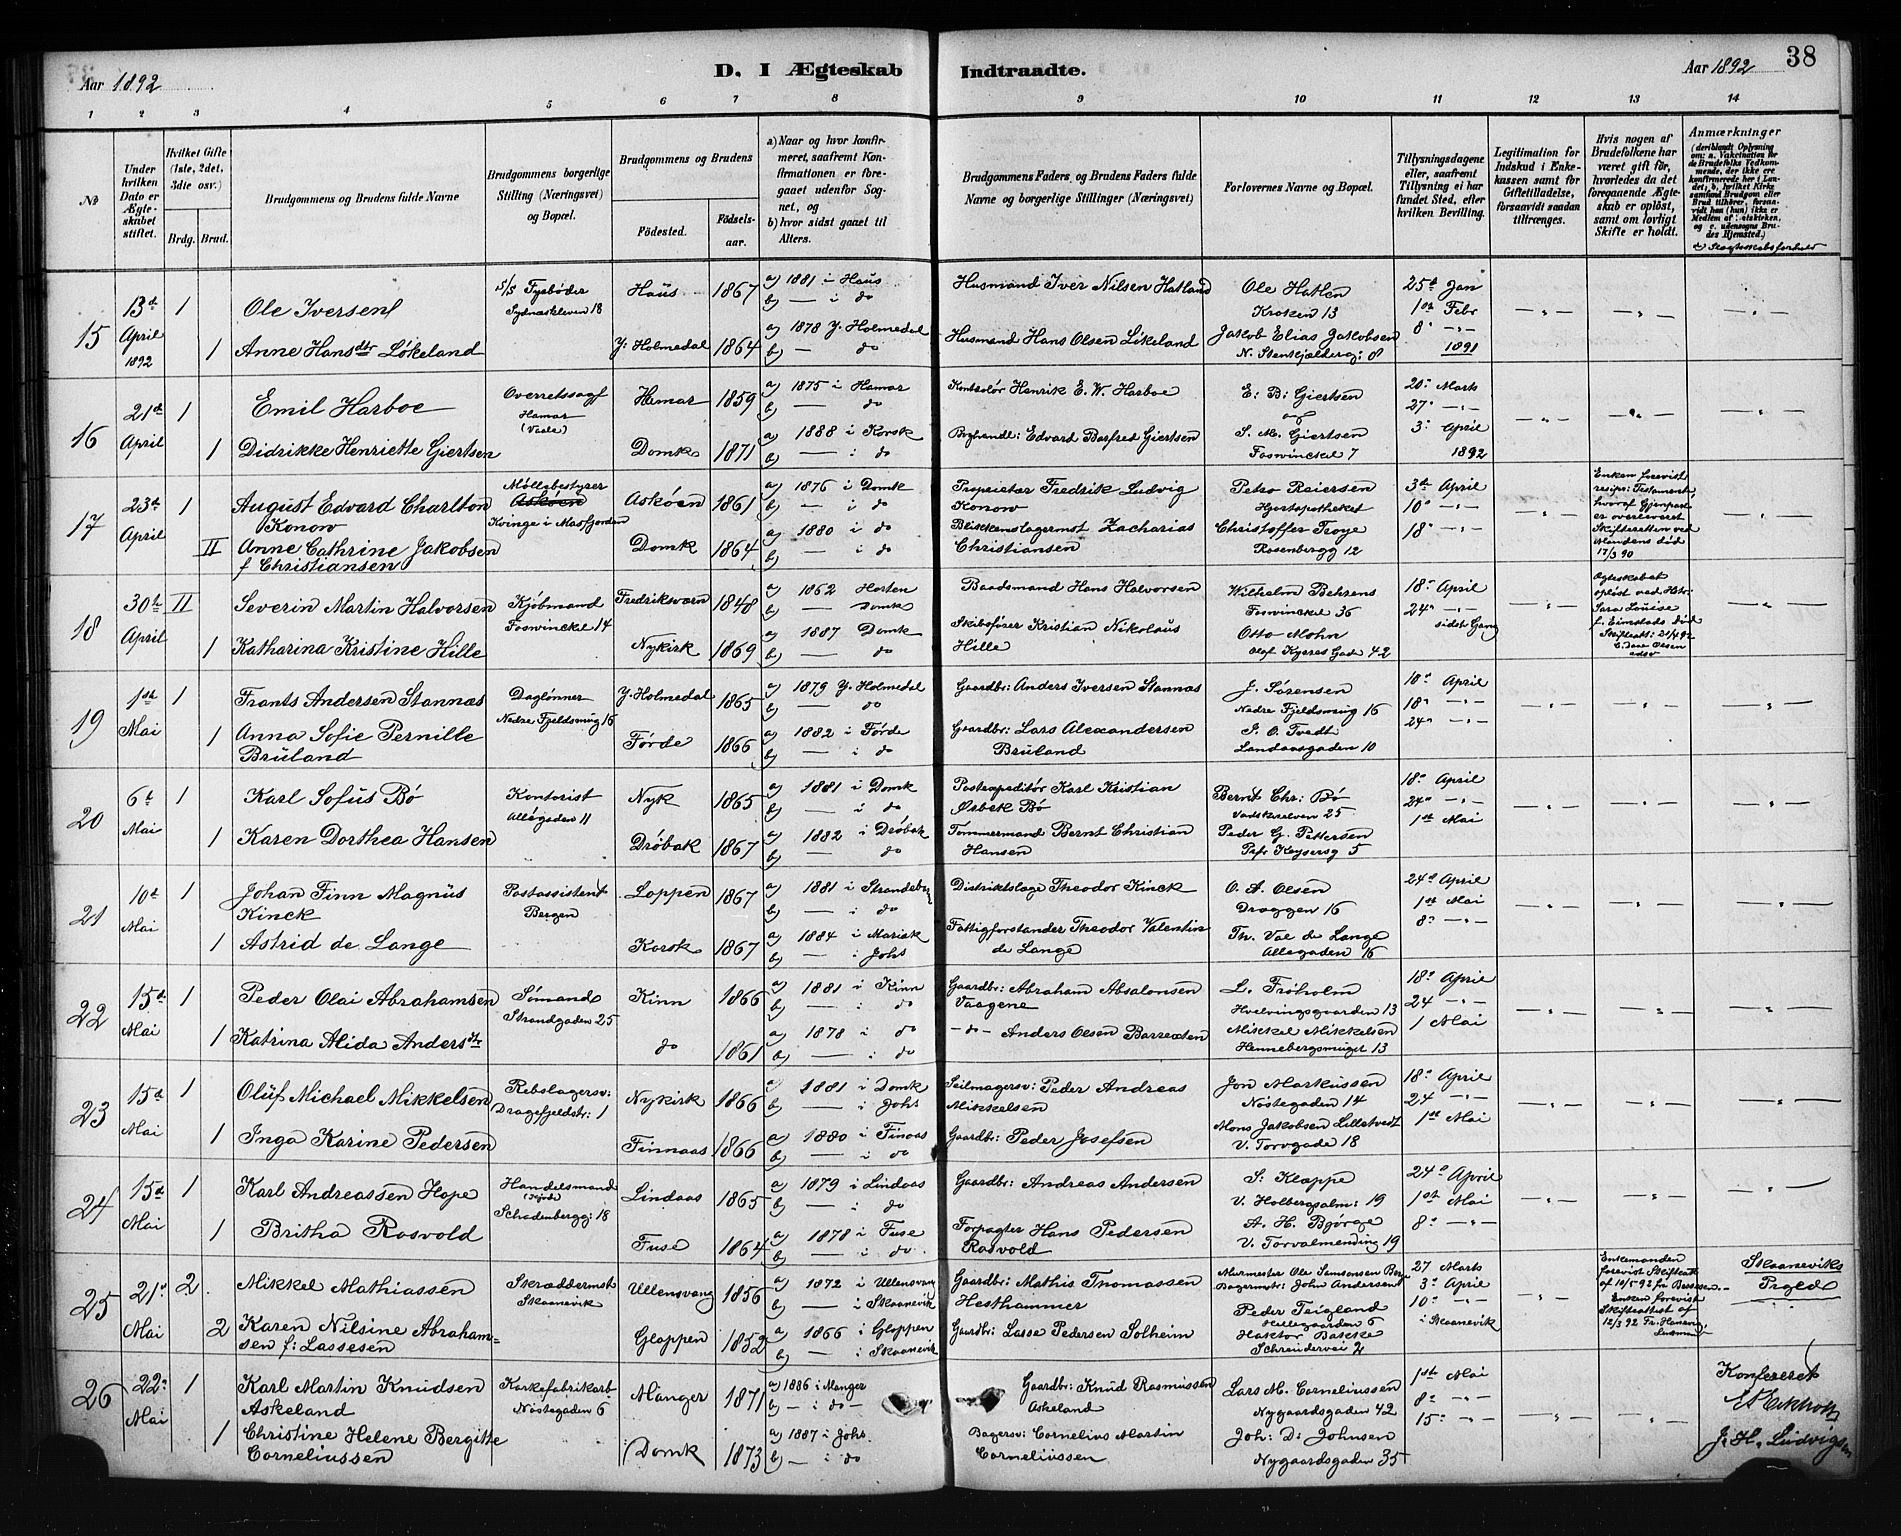 Aar 1892
D. I Ægteskab Indtraadte.
Aar 1892
38
1 2 3 4 5 6 7 8 9 10 11 12 13 14
No
Under hvilken Dato er Ægteskabet stiftet.
Hvilket Gifte (1ste, 2det, 3die osv.)
Brdg. Brud.
Brudgommens og Brudens fulde Navne
Brudgommens borgerlige Stilling (Næringsvei) og Bopæl.
Brudgommens og Brudens
Fødested. Fødselsaar.
a) Naar og hvor konfirmeret, saafremt Konfirmationen er foregaaet udenfor Sognet, og
b) hvor sidst gaaet til Alters.
Brudgommens Faders, og Brudens Faders fulde Navne og borgerlige Stillinger (Næringsvei)
Forlovernes Navne og Bopæl.
Tillysningsdagene eller, saafremt Tillysning ei har fundet Sted, efter hvilken Bevilling.
Legitimation for Indskud i Enkekassen samt for Giftetilladelse, forsaavidt saadan tiltrænges.
Hvis nogen af Brudefolkene har været gift før, hvorledes da det foregaaende Ægteskab er opløst, samt om lovligt Skifte er holdt.
Anmærkninger
(deriblandt Oplysning om: a. Vakcination for de Brudefolks Vedkommende, der ikke ere konfirmerede her i Landet; b. hvilket Kirkesamfund Brudgom eller Brud tilhører, forsaavidt han (hun) ikke er Medlem af Statskirken, og c. udensogns Brudes Hjemsted.)
d) Slægtsskabsforhold
15
13de April 1892
1
Ole Iversen
S/S Fyrbøder
Sydnæskleven 18
Haus 1867
a) 1881 i Haus
b) — i do
Husmand Iver Nilsen Hatland
Ole Hatlen
Kroken 13
25de Jan
1ste Febr
8de -"-
1891
1
Anne Hansdtr Løkeland
Y. Holmedal 1864
a) 1878 Y. Holmedal
b) — do
Husmand Hans Olsen Løkeland
Jakob Elias Jakobsen
N. Stenkjælderg: 8
16
21de April
1
Emil Harboe
Overretssagf
Hamar
(Vaale)
Hamar 1859
a) 1875 i Hamar
b) — do
Kontrolør Henrik E. W. Harboe
E. B. Giertsen
og
20de Marts
27de -"-
3de April
1892
1
Didrikke Henriette Giertsen
Domk 1871
a) 1888 i Korsk
b) — i do
Boghandl: Edvard Barfred Giertsen
S. M. Giertsen
Fosvinckel 7
17
23de April
1
August Edvard Charlton
Konow
Møllebestyrer
Askøen
Kvinge i Masfjorden
Askøen 1861
a) 1876 i Domk
b) — i do
Proprietær Fredrik Ludvig
Konow
Petro Reiersen
Hjorteapotheket
3de April
10de -"-
18de
Enken forevist
Testament,
hvoraf Gjenpart
er overleveret
Skifteretten ved
Mandens død
17/3 90
II
Anne Cathrine Jakobsen
f Christiansen
Domk 1864
a) 1880 i do
b) — i do
Blikkenslagermst Zacharias
Christiansen
Christoffer Troye
Rosenbergg 12
18
30te April
II
Severin Martin Halvorsen
Kjøbmand
Fosvinckel 14
Fredriksværn 1848
a) 1862 Horten
b) — Domk
Baadsmand Hans Halvorsen
Wilhelm Behrens
Fosvinckel 36
18de April
24de -"-
sidst Gang
Ægteskabet
opløst ved Hstr.
Sara Louise
f. Eimstads død
1
Katharina Kristine Hille
Nykirk 1869
a) 1887 Domk
b) — do
Skibsfører Kristian Nikolaus
Hille
Otto Mohn
Olaf Kyrres Gade 42
19
1ste Mai
1
Frants Andersen Stannæs
Daglønner
Nedre Fjeldsmug 16
Y. Holmedal 1865
a) 1879 Y. Holmedal
b) — do
Gaardbr: Anders Iversen Stannæs
J. Sørensen
Nedre Fjeldsmug 16
10de April
18de -"-
24de -"-
1
Anna Sofie Pernille
Bruland
Førde 1866
a) 1882 i Førde
b) — i do
Gaardbr: Lars Alexandersen
Bruland
S. O. Tvedt
Landaasgaden 10
20
6te Mai
1
Karl Sofus Bø
Kontorist
Allégaden 11
Nyk 1865
a) 1881 i Domk
b) — i do
Postexpeditør Karl Kristian
Ørbek Bø
Bernt Chr: Bø
25
18de April
24de -"-
1ste Mai
1
Karen Dorthea Hansen
Drøbak 1867
a) 1882 i Drøbak
b) — do
Tømmermand Bernt Christian
Hansen
Peder G. Pettersen
Prfr Keysersg 5
21
10de Mai
1
Johan Finn Magnus
Kinck
Postassistent
Bergen
Loppen 1867
a) 1881 i Strandebm
b) — i do
Distriktslæge Theodor Kinck
O. A. Olsen
Dræggen 16
24de April
1ste Mai
8de -"-
1
Astrid de Lange
Korsk 1867
a) 1884 i Mariak
b) — i Johs
Fattigforstander Theodor Valentin
de Lange
Th. Val de Lange
Allegaden 16
22
15de Mai
1
Peder Olai Abrahamsen
Sømand
Strandgaden 25
Kinn 1866
a) 1881 i Kinn
b) — i do
Gaardbr: Abraham Absalonsen
Vaagene
L. Frøholm
Hvelvingsgaarden 13
18de April
24 -"-
1 Mai
1
Katrina Alida Andersdtr
do 1861
a) 1878 i do
b) — i do
-do- Anders Olsen Barrexten
Mikkel Mikkelsen
Hennebergsmuget 13
23
15de Mai
1
Oluf Michael Mikkelsen
Rebslagersv:
Dragefjeldstr: 1
Nykirk 1866
a) 1881 i Domk
b) — i Johs
Seilmagersv: Peder Andreas
Mikkelsen
Jon Markussen
Nøstegaden 14
18de April
24 -"-
1ste Mai
1
Inga Karine Pedersen
Finnaas 1866
a) 1880 i Finaas
b) — i do
Gaardbr: Peder Josefsen
Mons Jakobsen Lilletvedt
V. Torvgade 18
24
15de Mai
1
Karl Andreassen Hope
Handelsmand
Schødenbergg: 18
Lindaas 1865
a) 1879 i Lindaas
b) — i do
Gaardbr: Andreas Andersen
S. Kloppe
V. Holbergsalm: 19
24de April
1ste Mai
8de -"-
1
Britha Rosvold
Fuse 1864
a) 1878 i Fuse
b) — i do
Forpagter Hans Pedersen
Rosvold
A. H. Bjørge
V. Torvalmending 19
25
21de Mai
2
Mikkel Mathiassen
Skræddermst
Skaanevik
Ullensvang 1856
a) 1872 i Ullensvang
b) — i Skaanevik
Gaardbr: Mathis Thomassen
Hesthammer
Murmester Ole Samsonsen Berge
Bagermstr: John Andersen
27 Marts
3de April
10de -"-
i Skaanevik
Enkemanden
forevist Skifteatt
af 10/5 92
Enken forevist
Skifteattest af
12/3 92
Skaaneviks
Prgjeld
2
Karen Nilsine Abrahamsen
f: Lassesen
Gloppen 1852
a) 1866 i Gloppen
b) — i Skaanevik
Gaardbr: Lasse Pedersen Solheim
Peder Teigland
Hollegaarden 6
Haktor Bakke
Schrøudervei 2
26
22de Mai
1
Karl Martin Knudsen
Askeland
Korkefabrikarb
Nøstegaden 6
Manger 1871
a) 1886 i Manger
b) — i do
Gaardbr: Knud Rasmussen
Askeland
Lars M. Corneliussen
Nygaardsgaden 42
1ste Mai
8de -"-
15de -"-
Konfereret
J. H. Ludvigsen
1
Christine Helene Bergitte
Corneliussen
Domk 1873
a) 1887 i Johs.
b) — i do
Bagersv: Cornelius Martin
Corneliussen
Joh: D: Johnsen
Nygaardsgaden 35